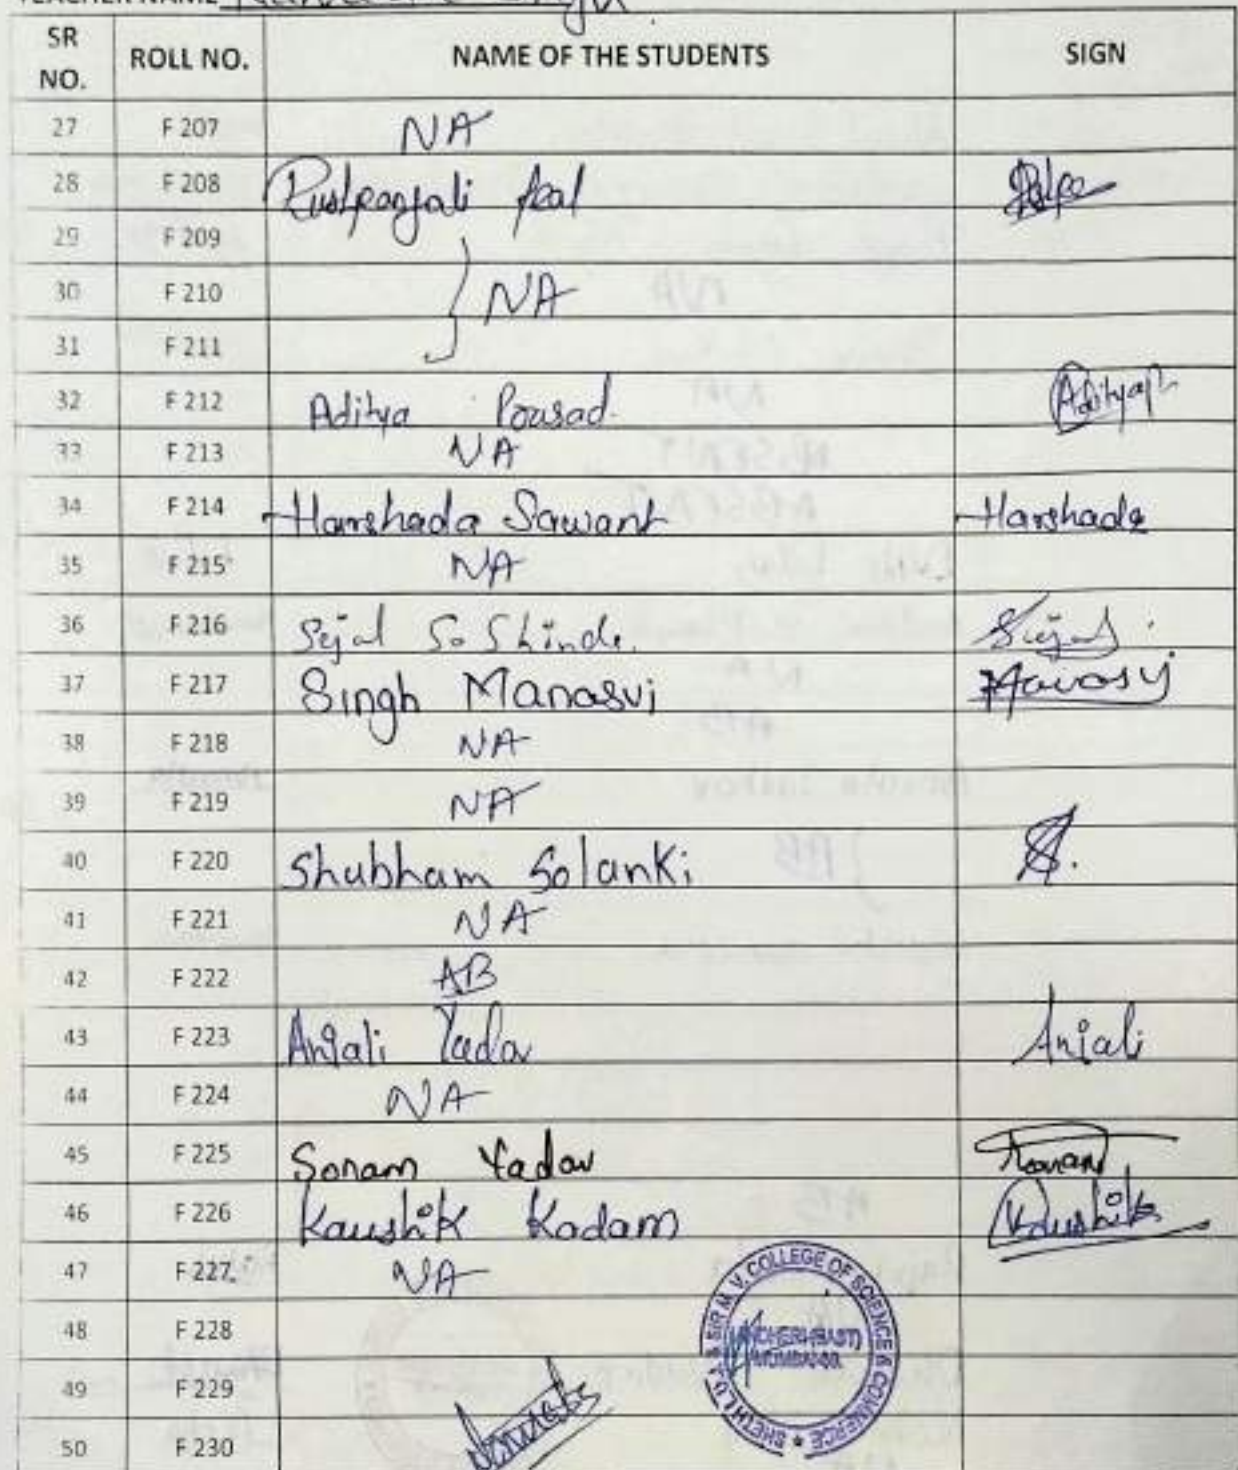 TEACHER NAME
SR NO. ROLL NO. NAME OF THE STUDENTS SIGN
27 F 207 NA
28 F 208 Pushpanjali Pal
29 F 209
30 F 210 NA
31 F 211
32 F 212 Aditya Prasad. Aditya
33 F 213 NA
34 F 214 Harshada Sawant Harshada
35 F 215 NA
36 F 216 Sejal S. Shinde. Sejal
37 F 217 Singh Manasvi Manasvi
38 F 218 NA
39 F 219 NA
40 F 220 Shubham Solanki S.
41 F 221 NA
42 F 222 AB
43 F 223 Anjali Yadav Anjali
44 F 224 NA
45 F 225 Sonam Yadav Sonam
46 F 226 Kaushik Kadam Kaushik
47 F 227 NA
48 F 228
49 F 229
50 F 230
SHETH L.U.J. & SIR M.V. COLLEGE OF SCIENCE & COMMERCE
ANDHERI (EAST)